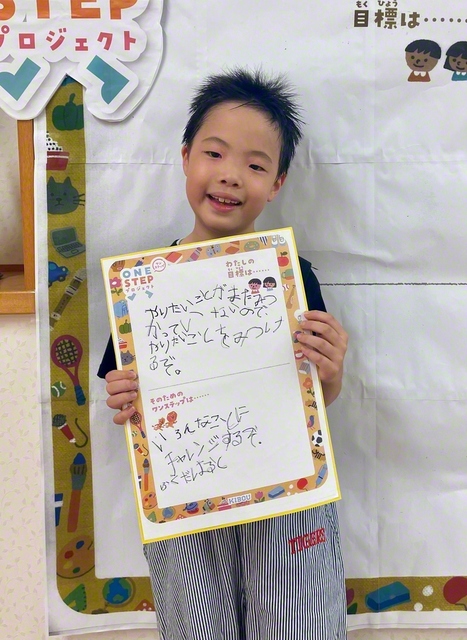 STEP
プロジェクト
もく ひょう
目標は……
ONE
STEP
プロジェクト
わたしの
目標は……
やりたいことがまだみつ
かっていないので、
やりたいことをみつけ
るぞ。
そのための
ワンステップは……
いろんなことに
チャレンジするぞ。
KIBOU